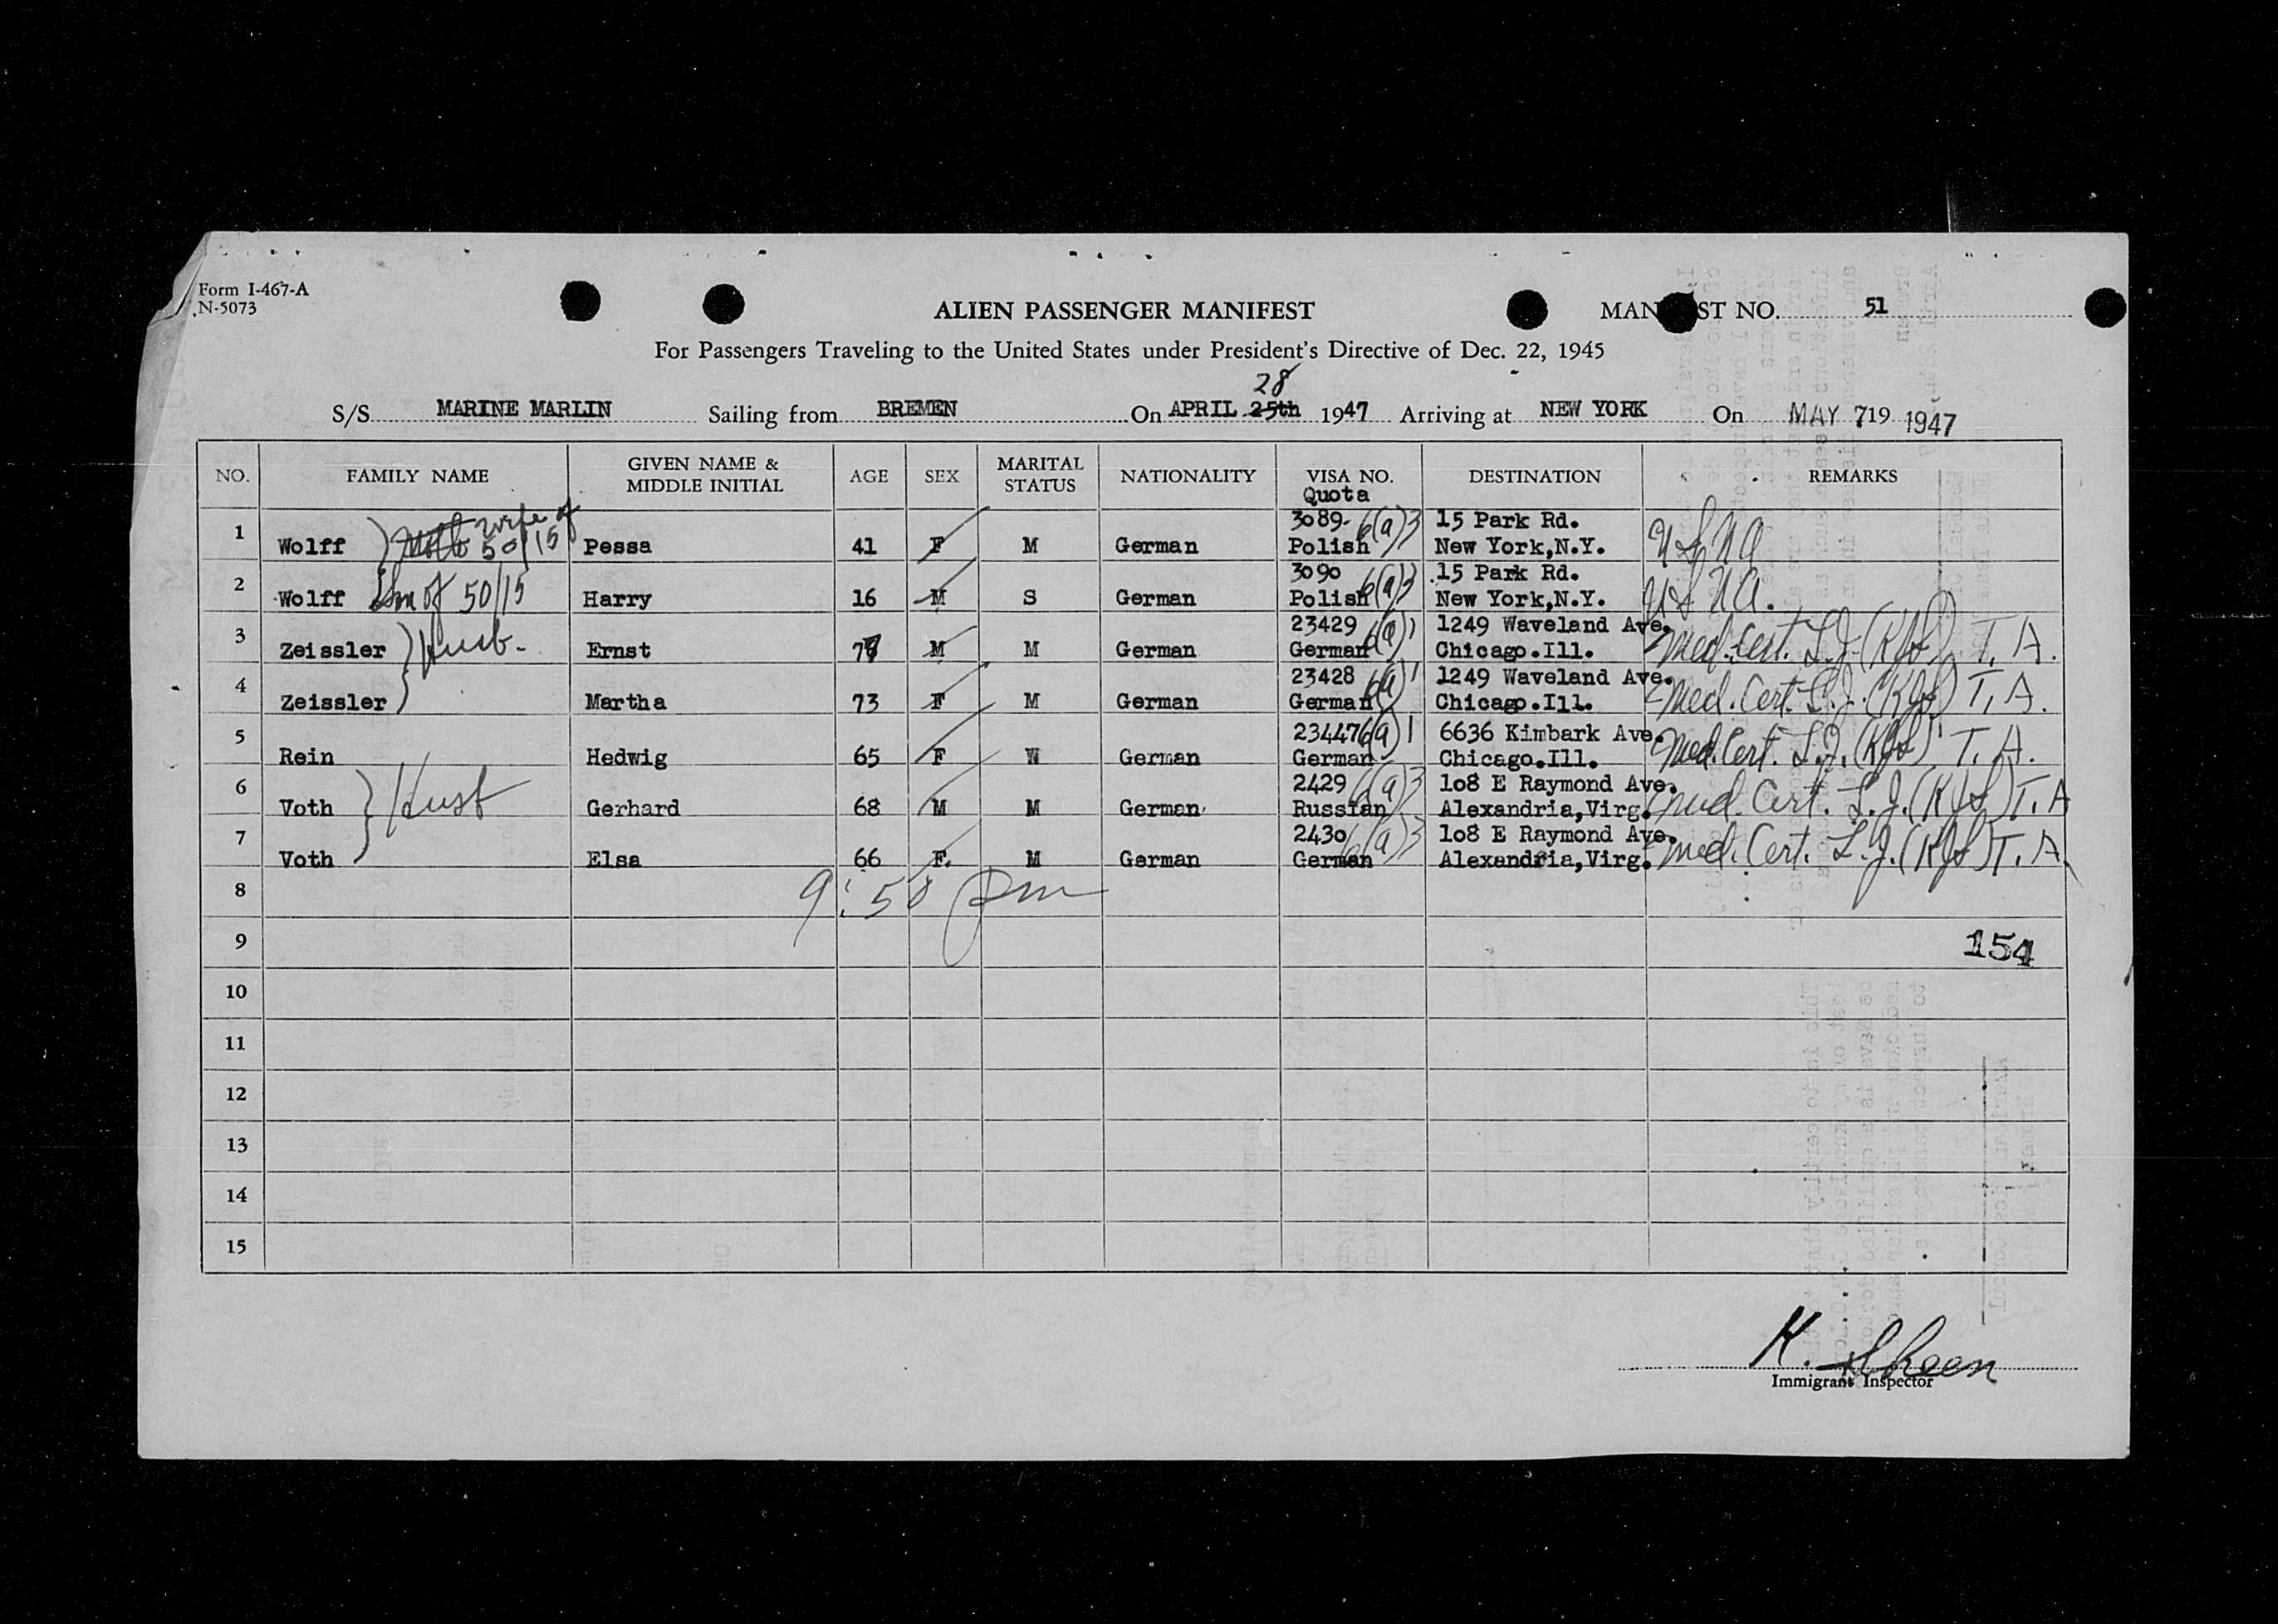 Form I-467-A
N-5073
ALIEN PASSENGER MANIFEST
MAN ST NO. 51
For Passengers Traveling to the United States under President's Directive of Dec. 22, 1945
28
S/S MARINE MARLIN Sailing from BREMEN On APRIL 25th 1947 Arriving at NEW YORK On MAY 7 19 1947
NO. FAMILY NAME GIVEN NAME & MIDDLE INITIAL AGE SEX MARITAL STATUS NATIONALITY VISA NO. Quota DESTINATION REMARKS
1 Wolff wife of 50/15 Pessa 41 F M German 3089- Polish 6(a)3 15 Park Rd. New York,N.Y. USNA
2 Wolff Son of 50/15 Harry 16 M S German 3090 Polish 6(a)3 15 Park Rd. New York,N.Y. USNA.
3 Zeissler Husb- Ernst 77 M M German 23429 German 6(a)1 1249 Waveland Ave. Chicago.Ill. Med. Cert. L.J. (KJS) T.A.
4 Zeissler Martha 73 F M German 23428 German 6(a)1 1249 Waveland Ave. Chicago.Ill. Med. Cert. L.J. (KJS) T.A.
5 Rein Hedwig 65 F W German 23447 German 6(a)1 6636 Kimbark Ave. Chicago.Ill. Med. Cert. L.J. (KJS) T.A.
6 Voth Husb Gerhard 68 M M German 2429 Russian 6(a)3 108 E Raymond Ave. Alexandria,Virg. Med. Cert. L.J. (KJS) T.A
7 Voth Elsa 66 F. M German 2430 German 6(a)3 108 E Raymond Ave. Alexandria,Virg. Med. Cert. L.J. (KJS) T.A.
8 9:50 pm
9 154
10
11
12
13
14
15
K. Skeen
Immigrant Inspector